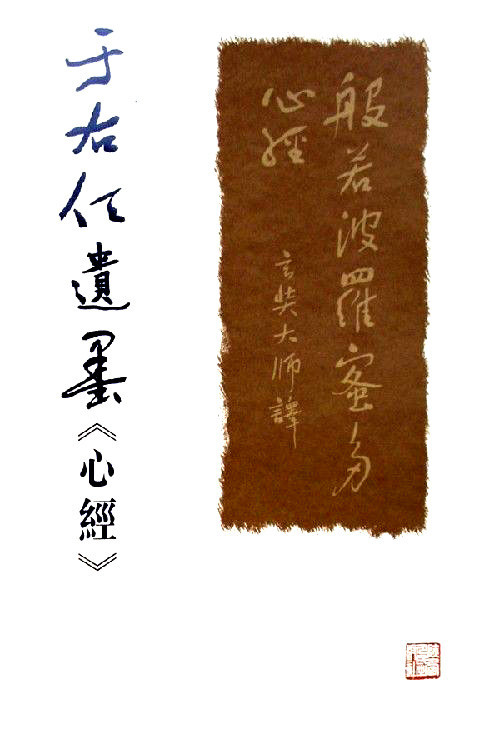 般若波羅蜜多
心經
玄奘大師譯
于右任遺墨《心經》